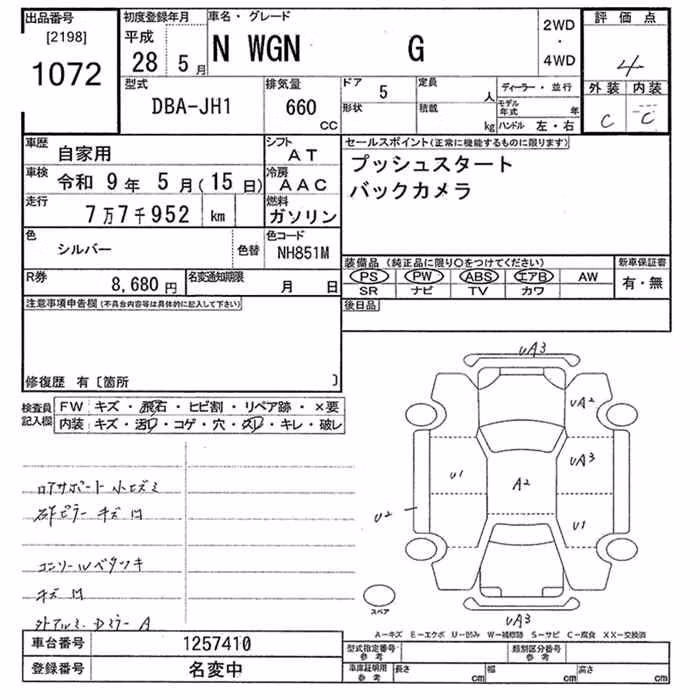 出品番号
[2198]
1072
初度登録年月
平成
28 5月
車名・グレード
N WGN G
2WD
・
4WD
評価点
4
外装 内装
C C
型式
DBA-JH1
排気量
660
CC
ドア 5
形状
定員 人
積載 kg
ディーラー・並行
モデル年式 年
ハンドル 左・右
車歴 自家用
シフト AT
車検 令和 9年 5月(15日)
冷房 AAC
走行 7万7千952 km
燃料 ガソリン
色 シルバー 色替
色コード NH851M
R券 8,680円
名変通知期限 月 日
セールスポイント(正常に機能するものに限ります)
プッシュスタート
バックカメラ
装備品(純正品に限り○をつけてください)
PS PW ABS エアB AW
SR ナビ TV カワ
新車保証書
有・無
後日品
注意事項申告欄(不具合内容等は具体的に記入して下さい)
修復歴 有〔箇所 〕
検査員記入欄
FW キズ・飛石・ヒビ割・リペア跡・×要
内装 キズ・汚レ・コゲ・穴・スレ・キレ・破レ
コアサポート小ヒズミ
キズ
コンソールベタツキ
キズ
外アルミ.Dミラー A
UA3
UA2
UA3
U1
A2
U2
U1
UA3
スペア
A-キズ E-エクボ U-凹み W-補修跡 S-サビ C-腐食 XX-交換済
車台番号 1257410
登録番号 名変中
型式指定番号 参考
類別区分番号 参考
車庫証明用 参考
長さ cm 幅 cm 高さ cm